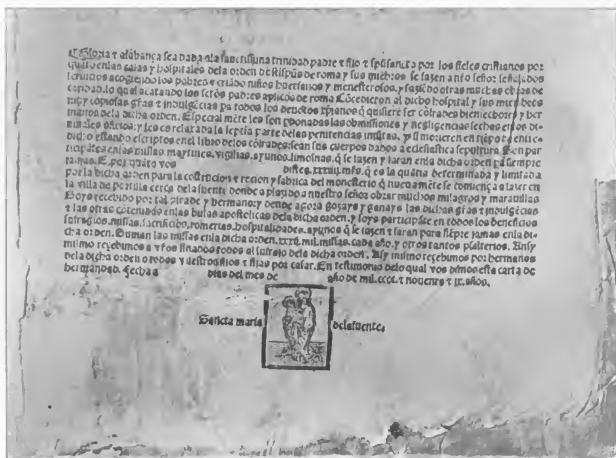 Gloria τ alabança sea dada ala sanctissima trinidad padre τ fijo τ spũsancto por los fieles cristianos por
enlas casas y hospitales dela orden de de roma y sus miẽbros se fazen a nr̃o señor señalados
seruicios acogiendo los pobres τ criãdo niños huerfanos y menesterosos, y faziẽdo otras muchas obras de
caridad. lo qual acatando los sctõs padres aplicos de roma Cõcedieron al dicho hospital y sus miẽbros
muy copiosas grãs τ indulgẽcias pa todos los deuotos xp̃ianos q̃ quisierẽ ser cõfrades bienhechores y her
manos dela dicha orden. Especial mẽte les son pdonadas las obmissiones y negligencias fechas enlos di
uinales oficios: y les es relaxada la septia parte delas penitencias y si
dicho estando escriptos enel libro delos cõfrades: sean sus cuerpos dados a eclesiastica sepultura
ticipantes enlas missas, maytines, vigilias, ayunos, limosnas, q̃ se fazen y faran enla dicha orden pa siempre
E por quãto vos distes q̃ es la quãtia determinada y limitada
por la dicha orden para la y fabrica del monesterio q̃ nueuamẽte se comiença a fazer en
la villa de cerca dela fuente donde a plazido a nuestro señor obrar muchos milagros y marauillas
Soys recebido por tal cõfrade y hermano: y dende agora gozays y ganays las dichas grãs τ indulgẽcias
τ las otras cõtenidas enlas bulas apostolicas dela dicha orden, y soys participãte en todos los beneficios
sufragios, missas, sacrificios, romerias, hospitalidades, ayunos q̃ se fazen τ faran para siẽpre jamas enla di
cha orden. Suman las missas enla dicha orden. mil. missas, cada año, y otros tantos psalterios. Ansy
mismo recebimos a vr̃os finados todos al sufrajo dela dicha orden, Assy mismo recebimos por hermanos
dela dicha orden a todos vuestros fijos τ fijas por casar. En testimonio delo qual vos dimos esta carta de
hermandad. Fecha a dias del mes de año de mil.cccc.τ nouenta τ ix. años.
Sancta maria delafuente.